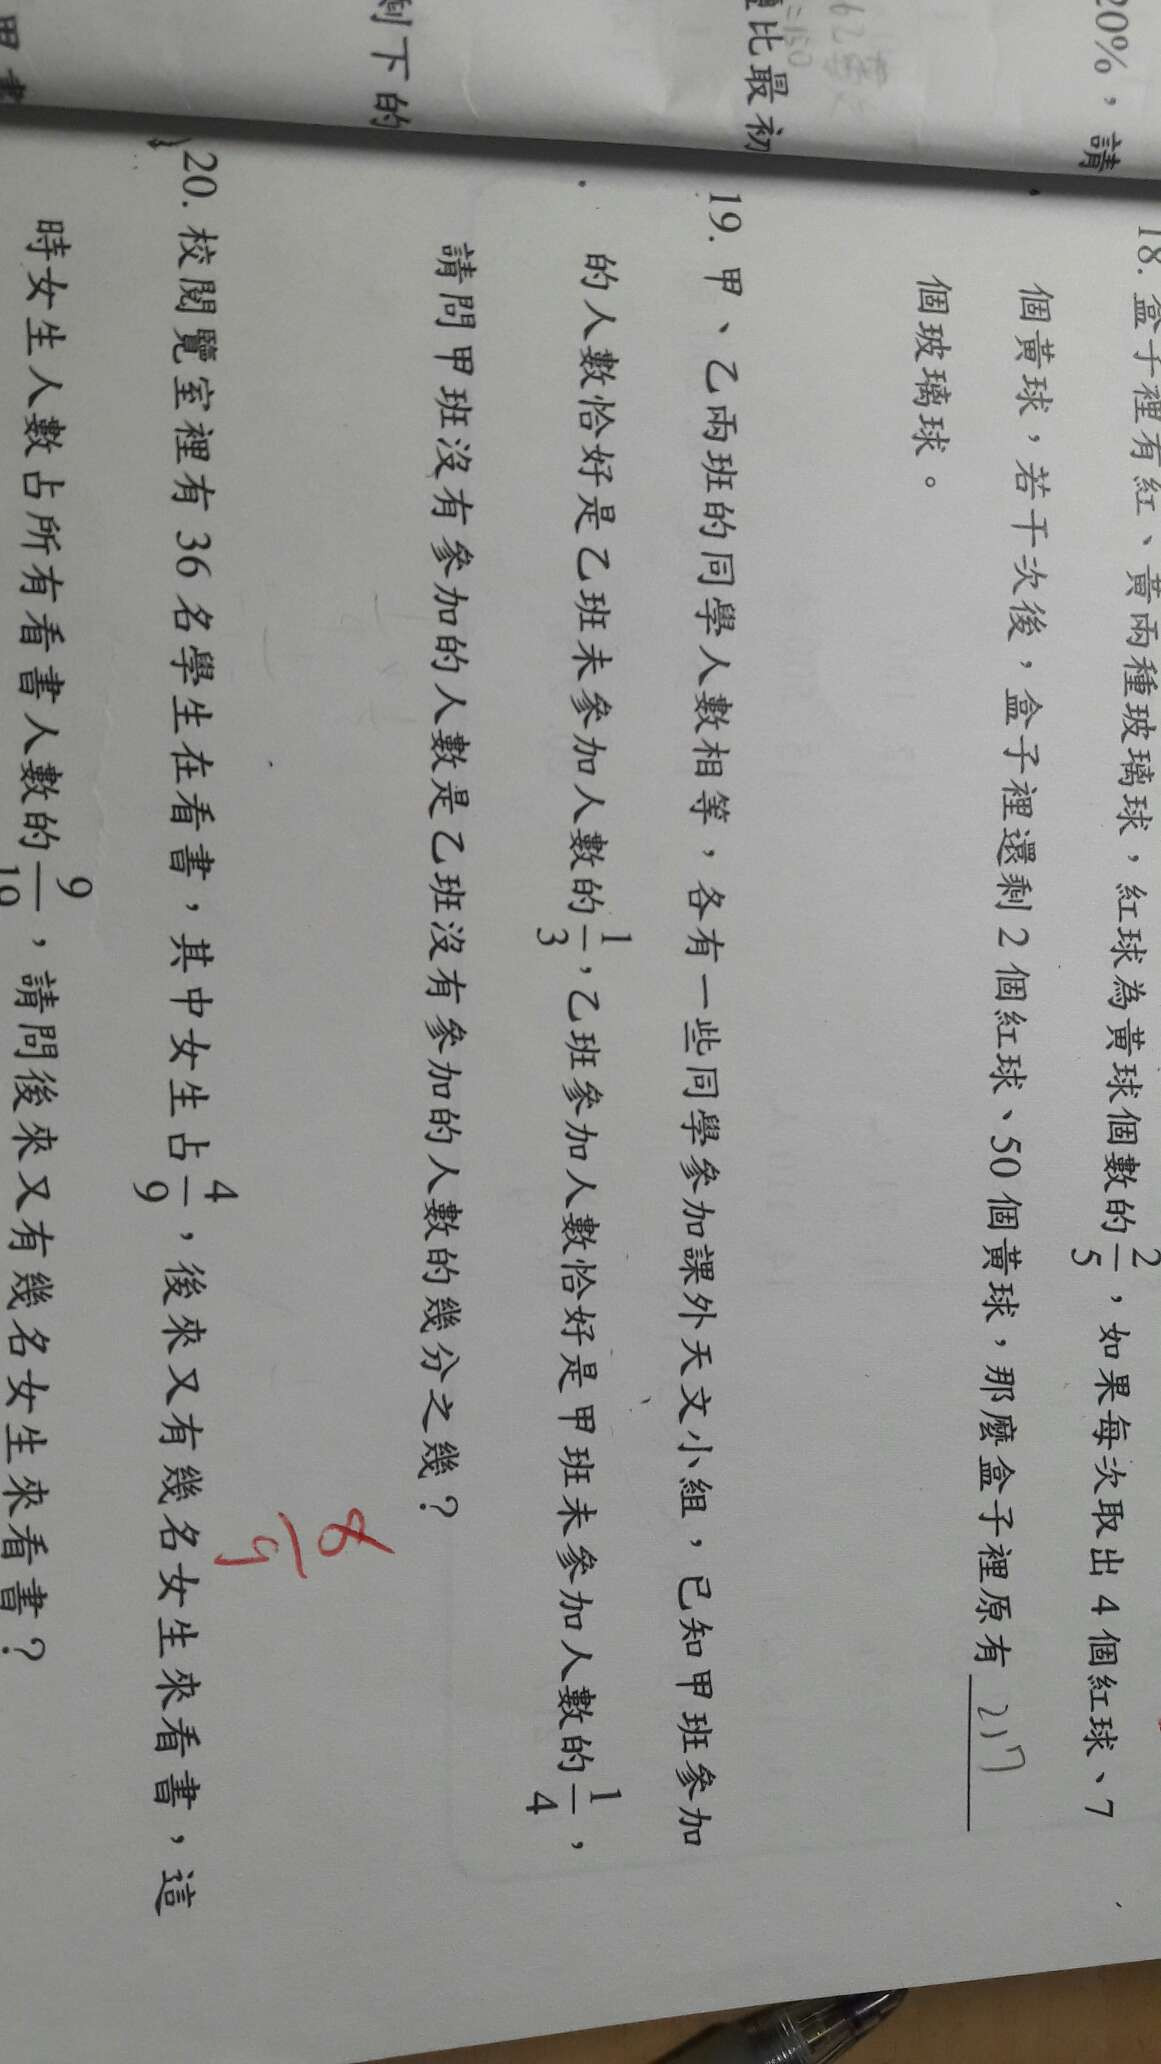 20%，請
比最初
剩下的
18. 盒子裡有紅、黃兩種玻璃球，紅球為黃球個數的2/5，如果每次取出4個紅球、7
個黃球，若干次後，盒子裡還剩2個紅球、50個黃球，那麼盒子裡原有 217
個玻璃球。
19. 甲、乙兩班的同學人數相等，各有一些同學參加課外天文小組，已知甲班參加
的人數恰好是乙班未參加人數的1/3，乙班參加人數恰好是甲班未參加人數的1/4，
請問甲班沒有參加的人數是乙班沒有參加的人數的幾分之幾？
8/9
20. 校閱覽室裡有36名學生在看書，其中女生占4/9，後來又有幾名女生來看書，這
時女生人數占所有看書人數的9/19，請問後來又有幾名女生來看書？